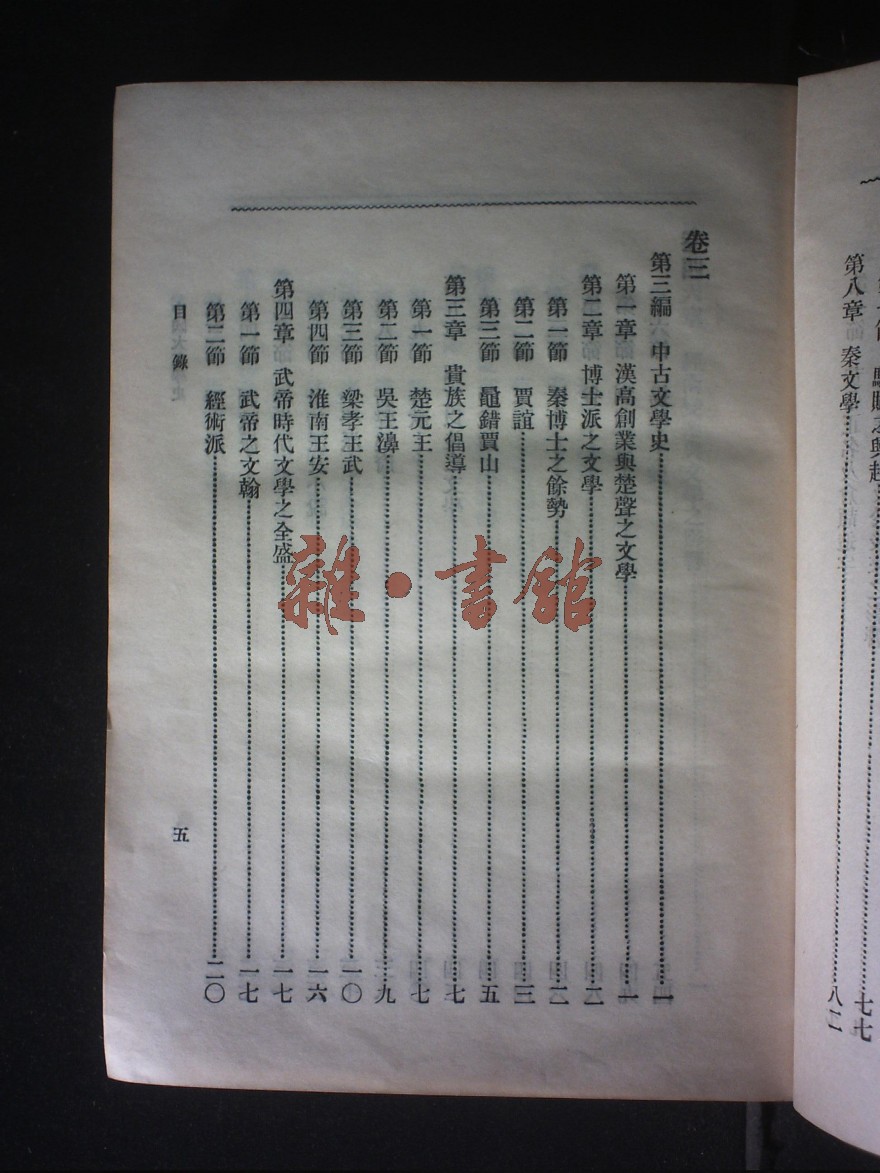 第八章 秦文學
七七
八二
卷三
第三編 中古文學史 一
第一章 漢高創業與楚聲之文學 一
第二章 博士派之文學 二
第一節 秦博士之餘勢 二
第二節 賈誼 三
第三節 鼂錯賈山 五
第三章 貴族之倡導 七
第一節 楚元王 七
第二節 吳王濞 九
第三節 梁孝王武 一〇
第四節 淮南王安 一六
第四章 武帝時代文學之全盛 一七
第一節 武帝之文翰 一七
第二節 經術派 二〇
目錄
五
雜·書館